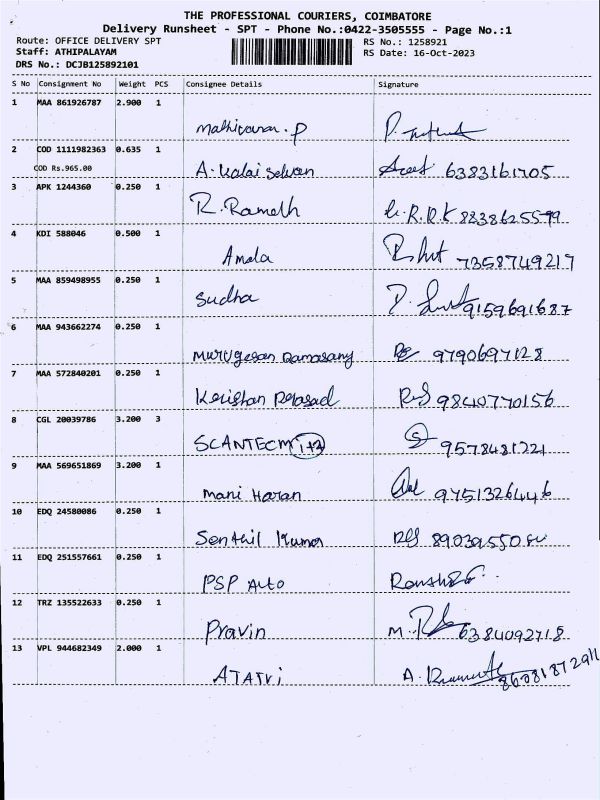 THE PROFESSIONAL COURIERS, COIMBATORE
Delivery Runsheet - SPT - Phone No.:0422-3505555 - Page No.:1
Route: OFFICE DELIVERY SPT
Staff: ATHIPALAYAM
DRS No.: DCJB125892101
RS No.: 1258921
RS Date: 16-Oct-2023
S No Consignment No Weight PCS Consignee Details Signature
1 MAA 861926787 2.900 1
Mathivanan.P
2 COD 1111982363 0.635 1
COD Rs.965.00
A. Kalai Selvan 6383161705
3 APK 1244360 0.250 1
R. Ramesh 8838625599
4 KDI 588046 0.500 1
Amala 7358749217
5 MAA 859498955 0.250 1
Sudha 9159691687
6 MAA 943662274 0.250 1
Murugesan Ramasany 9790697128
7 MAA 572840201 0.250 1
Kerishan Perasad 9840770156
8 CGL 20039786 3.200 3
SCANTECM 1+2 9578481221
9 MAA 569651869 3.200 1
Mani Haran 9751326446
10 EDQ 24580086 0.250 1
Senthil Kumar
11 EDQ 251557661 0.250 1
PSP Auto
12 TRZ 135522633 0.250 1
Pravin M. 6384092718
13 VPL 944682349 2.000 1
A.